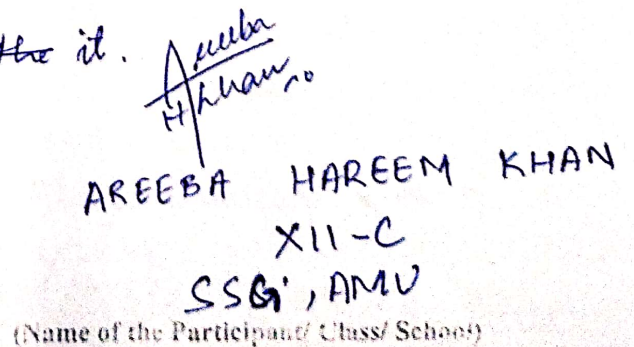 the it.
Areeba
H Khan
AREEBA HAREEM KHAN
XII-C
SSG, AMU
(Name of the Participant/ Class/ School)